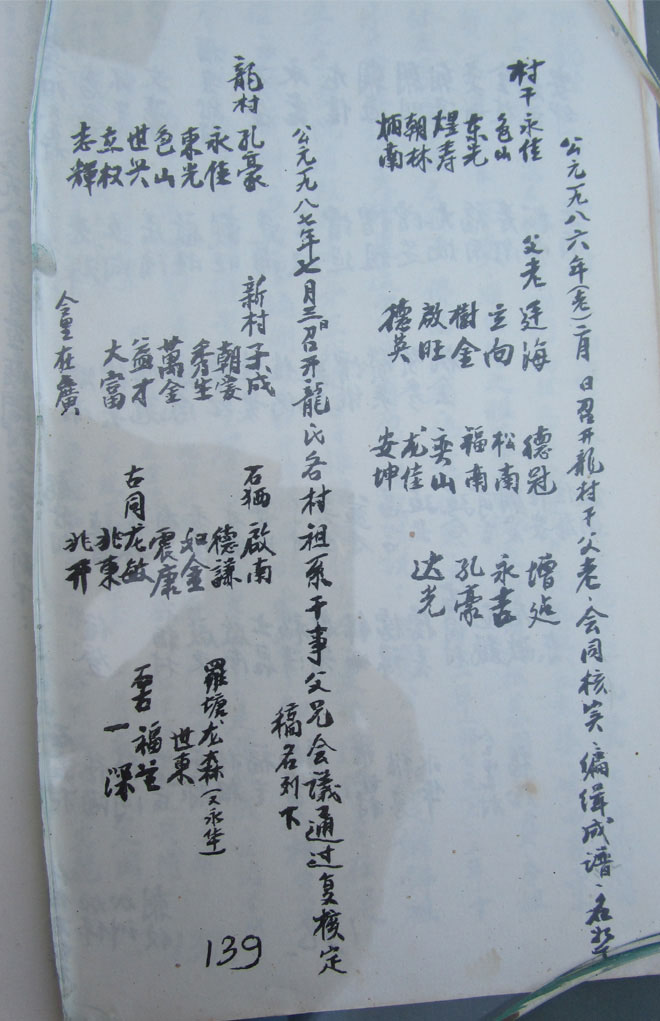 公元一九八六年(老)二月 日召开龍村干父老会同核实编缉成譜、名列下
村干永佳 父老廷海 德冠 增
色山 立向 松南 永吉
东光 樹金 福南 孔豪
煜寿 啟旺 奕山 达光
朝林 德英 龙佳
炳南 安坤
公元一九八七年七月三日召开龍氏各村祖系干事父兄会議通过复核定
稿名列下
龍村孔豪 新村子成 石牺啟南 羅塘龙森(又永华)
永佳 朝安 德謙 世東
東光 秀生 如金
色山 萬金 震康 福生
世兴 益才 古同龙敏 一深
立权 大富 兆東
志輝 兆开
在廣
139